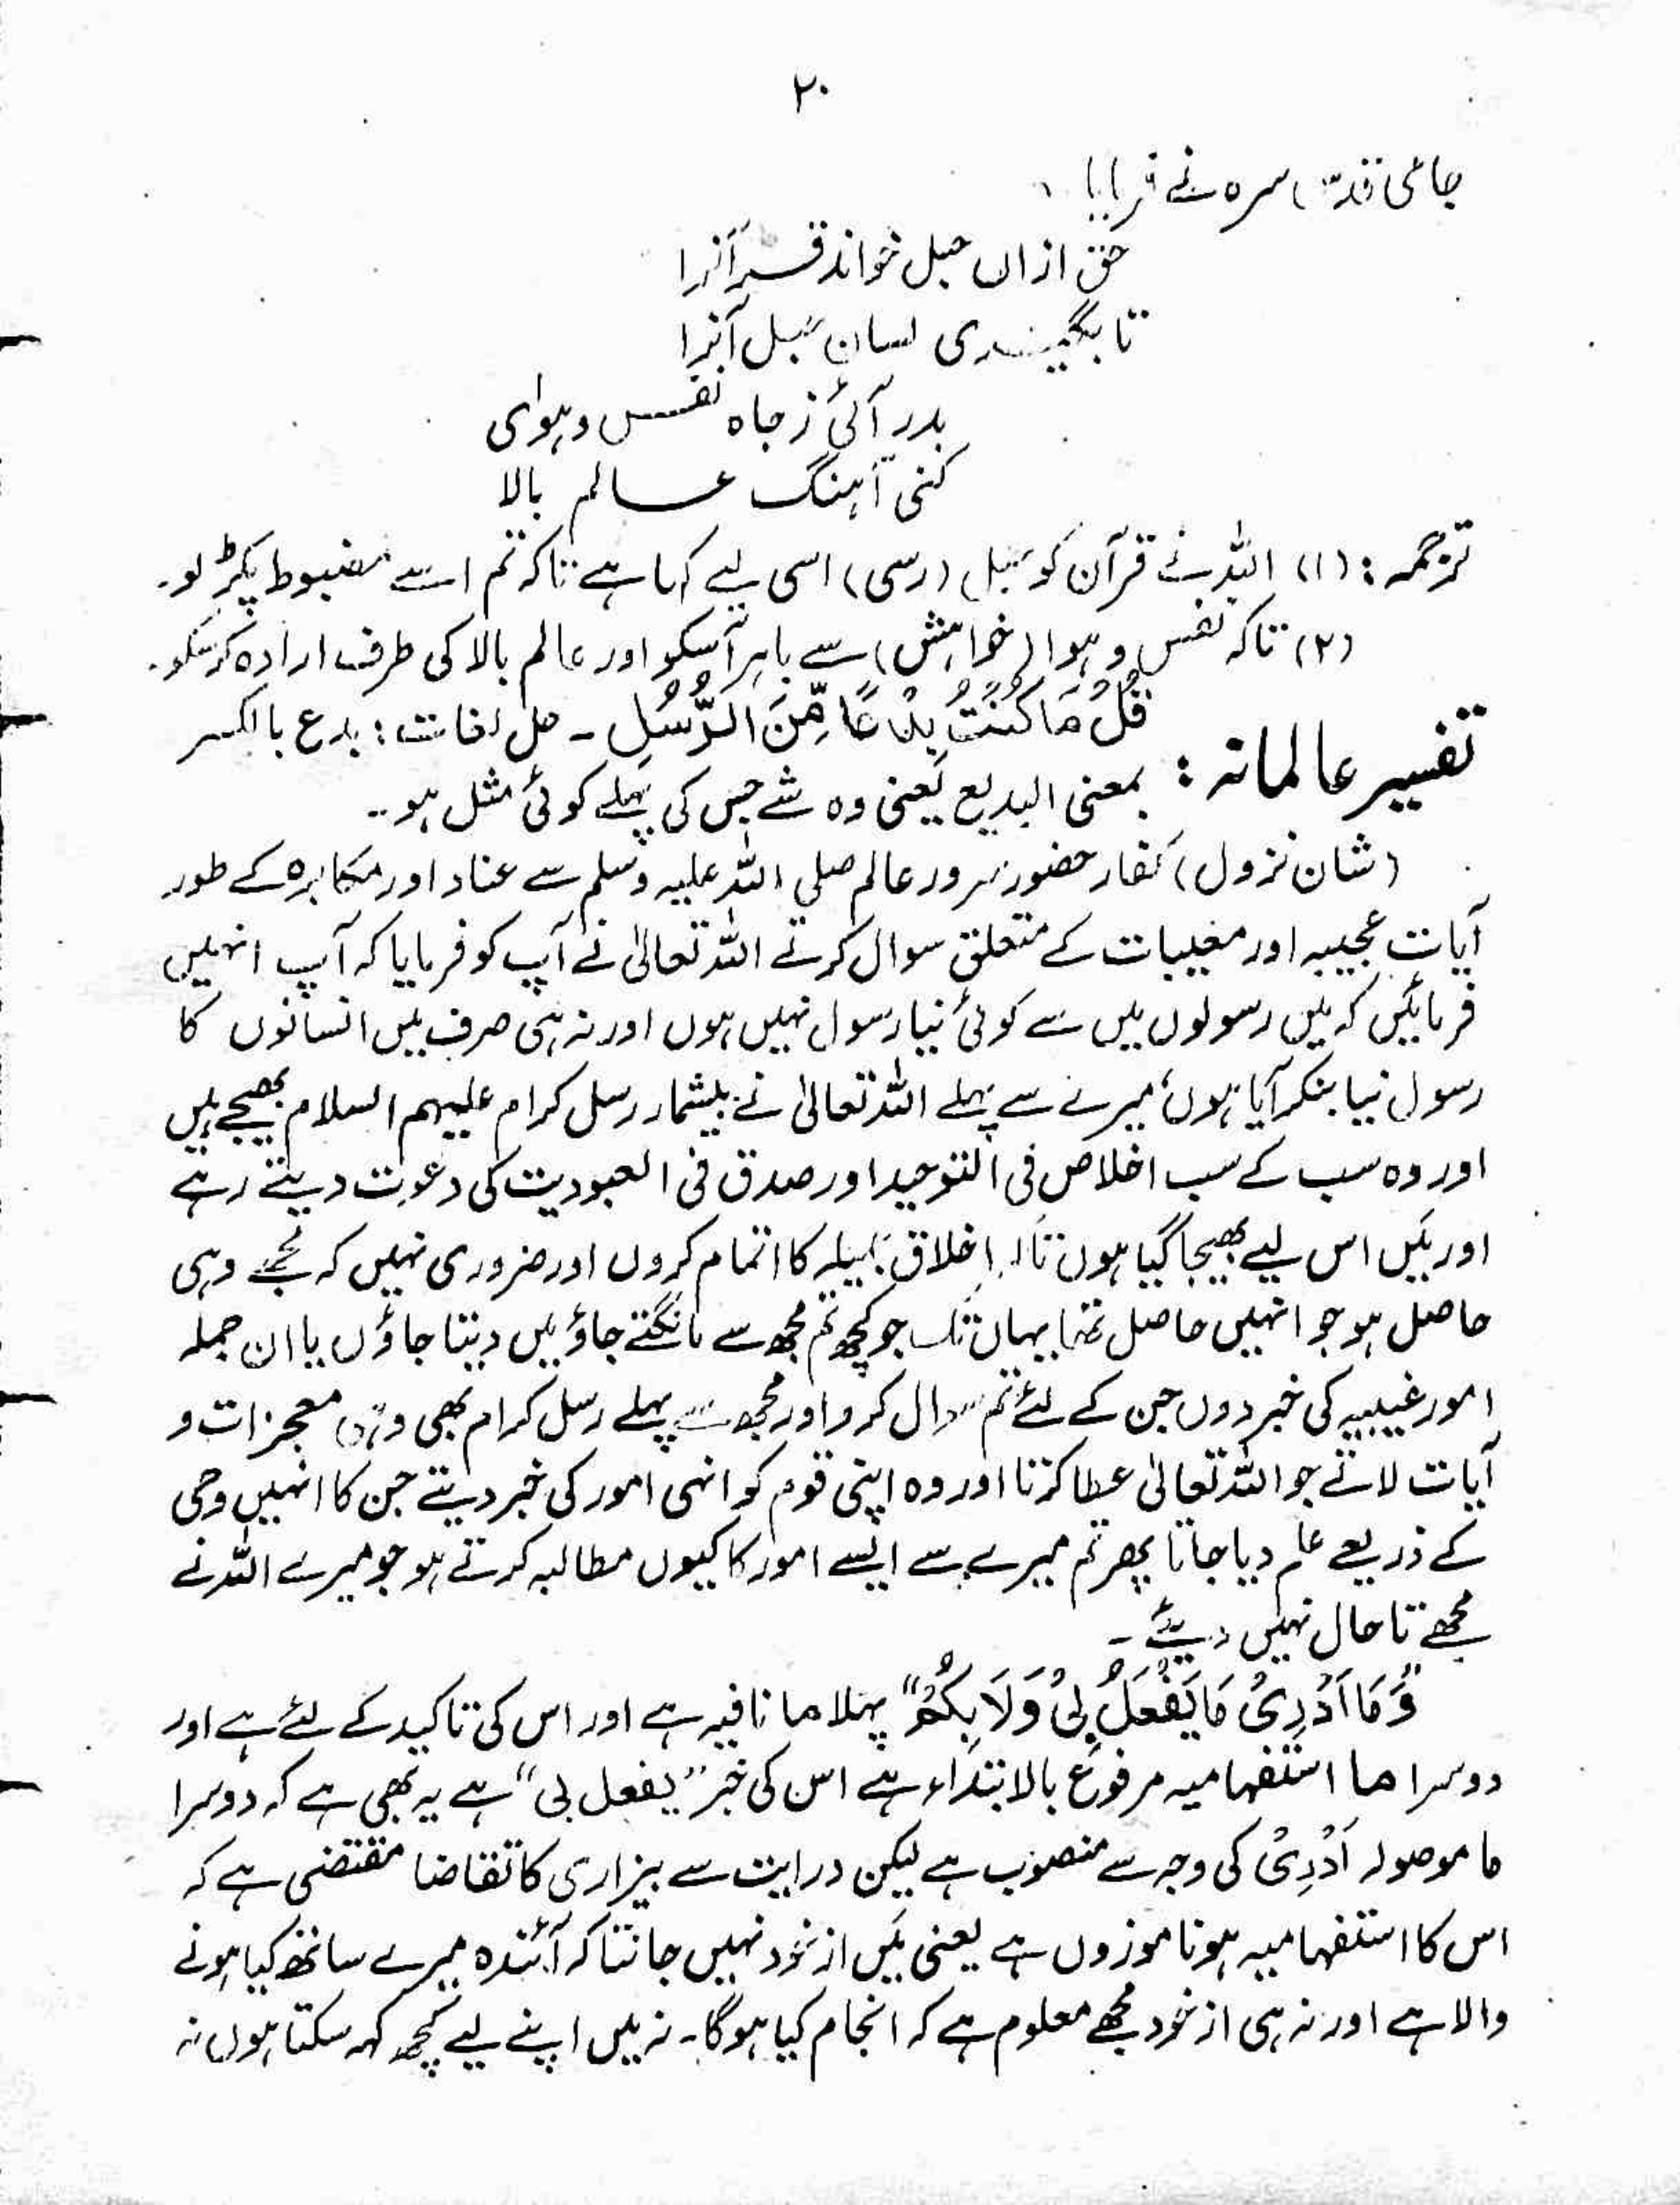 ۲۰
جامی قدس سرہ نے فرمایا
حق ازاں حبل خواند قرآنرا
تا بگیری بسان حبل آنرا
بدر آئی ز جاہ نفس و ہوای
کنی آہنگ عالم بالا
ترجمہ: (۱) اللہ نے قرآن کو حبل (رسی) اسی لیے کہا ہے تاکہ تم اسے مضبوط پکڑ لو۔
(۲) تاکہ نفس و ہوا (خواہش) سے باہر آسکو اور عالم بالا کی طرف ارادہ کرسکو۔
تفسیر عالمانہ : قُلْ مَا كُنْتُ بِدْعًا مِّنَ الرُّسُلِ ۔ حل لغات : بدع بالکسر
بمعنی البدیع یعنی وہ شے جس کی پہلے کوئی مثل ہو ۔
(شان نزول) کفار حضور سرور عالم صلی اللہ علیہ وسلم سے عناد اور مکابرہ کے طور
آیات عجیبہ اور مغیبات کے متعلق سوال کرتے اللہ تعالیٰ نے آپ کو فرمایا کہ آپ انہیں
فرمائیں کہ میں رسولوں میں سے کوئی نیا رسول نہیں ہوں اور نہ ہی صرف میں انسانوں کا
رسول نیا بنکر آیا ہوں، میرے سے پہلے اللہ تعالیٰ نے بیشمار رسل کرام علیہم السلام بھیجے ہیں
اور وہ سب کے سب اخلاص فی التوحید اور صدق فی العبودیت کی دعوت دیتے رہے
اور میں اس لیے بھیجا گیا ہوں تاکہ اخلاق جمیلہ کا اتمام کروں اور ضروری نہیں کہ مجھے وہی
حاصل ہو جو انہیں حاصل تھا یہاں تک جو کچھ تم مجھ سے مانگتے جاؤ میں دیتا جاؤں یا ان جملہ
امور غیبیہ کی خبر دوں جن کے لئے تم سوال کرو اور مجھ سے پہلے رسل کرام بھی وہی معجزات و
آیات لاتے جو اللہ تعالیٰ عطا کرتا اور وہ اپنی قوم کو انہی امور کی خبر دیتے جن کا انہیں وحی
کے ذریعے علم دیا جاتا پھر تم میرے سے ایسے امور کا کیوں مطالبہ کرتے ہو جو میرے اللہ نے
مجھے تا حال نہیں دیئے ۔
"وَمَا اَدْرِىْ مَا يَفْعَلُ بِىْ وَلَا بِكُمْ" پہلا ما نافیہ ہے اور اس کی تاکید کے لئے ہے اور
دوسرا ما استفہامیہ مرفوع بالابتداء ہے اس کی خبر "یفعل بی" ہے یہ بھی ہے کہ دوسرا
ما موصولہ اَدْرِىْ کی وجہ سے منصوب ہے لیکن درایت سے بیزاری کا تقاضا مقتضی ہے کہ
اس کا استفہامیہ ہونا موزوں ہے یعنی میں از خود نہیں جانتا کہ آئندہ میرے ساتھ کیا ہونے
والا ہے اور نہ ہی از خود مجھے معلوم ہے کہ انجام کیا ہوگا ۔ نہ میں اپنے لیے کچھ کہہ سکتا ہوں نہ